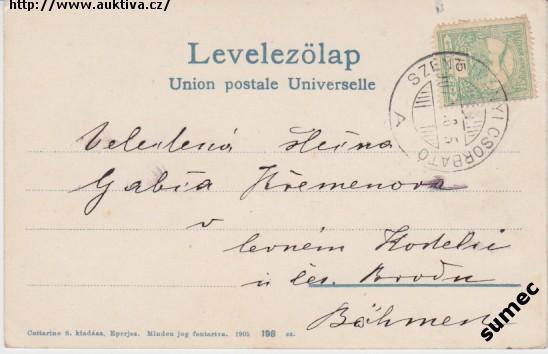 http://www.auktiva.cz/
Levelezőlap
Union postale Universelle
5
A SZEN NYI CSORBATÓ
Velectená slečna
Gabia Křemenova
v
Kostelci
u čes. Brodu
Böhmen
Cattarino S. kiadása, Eperjes. Minden jog fentartva. 1905 198 sz.
sumec